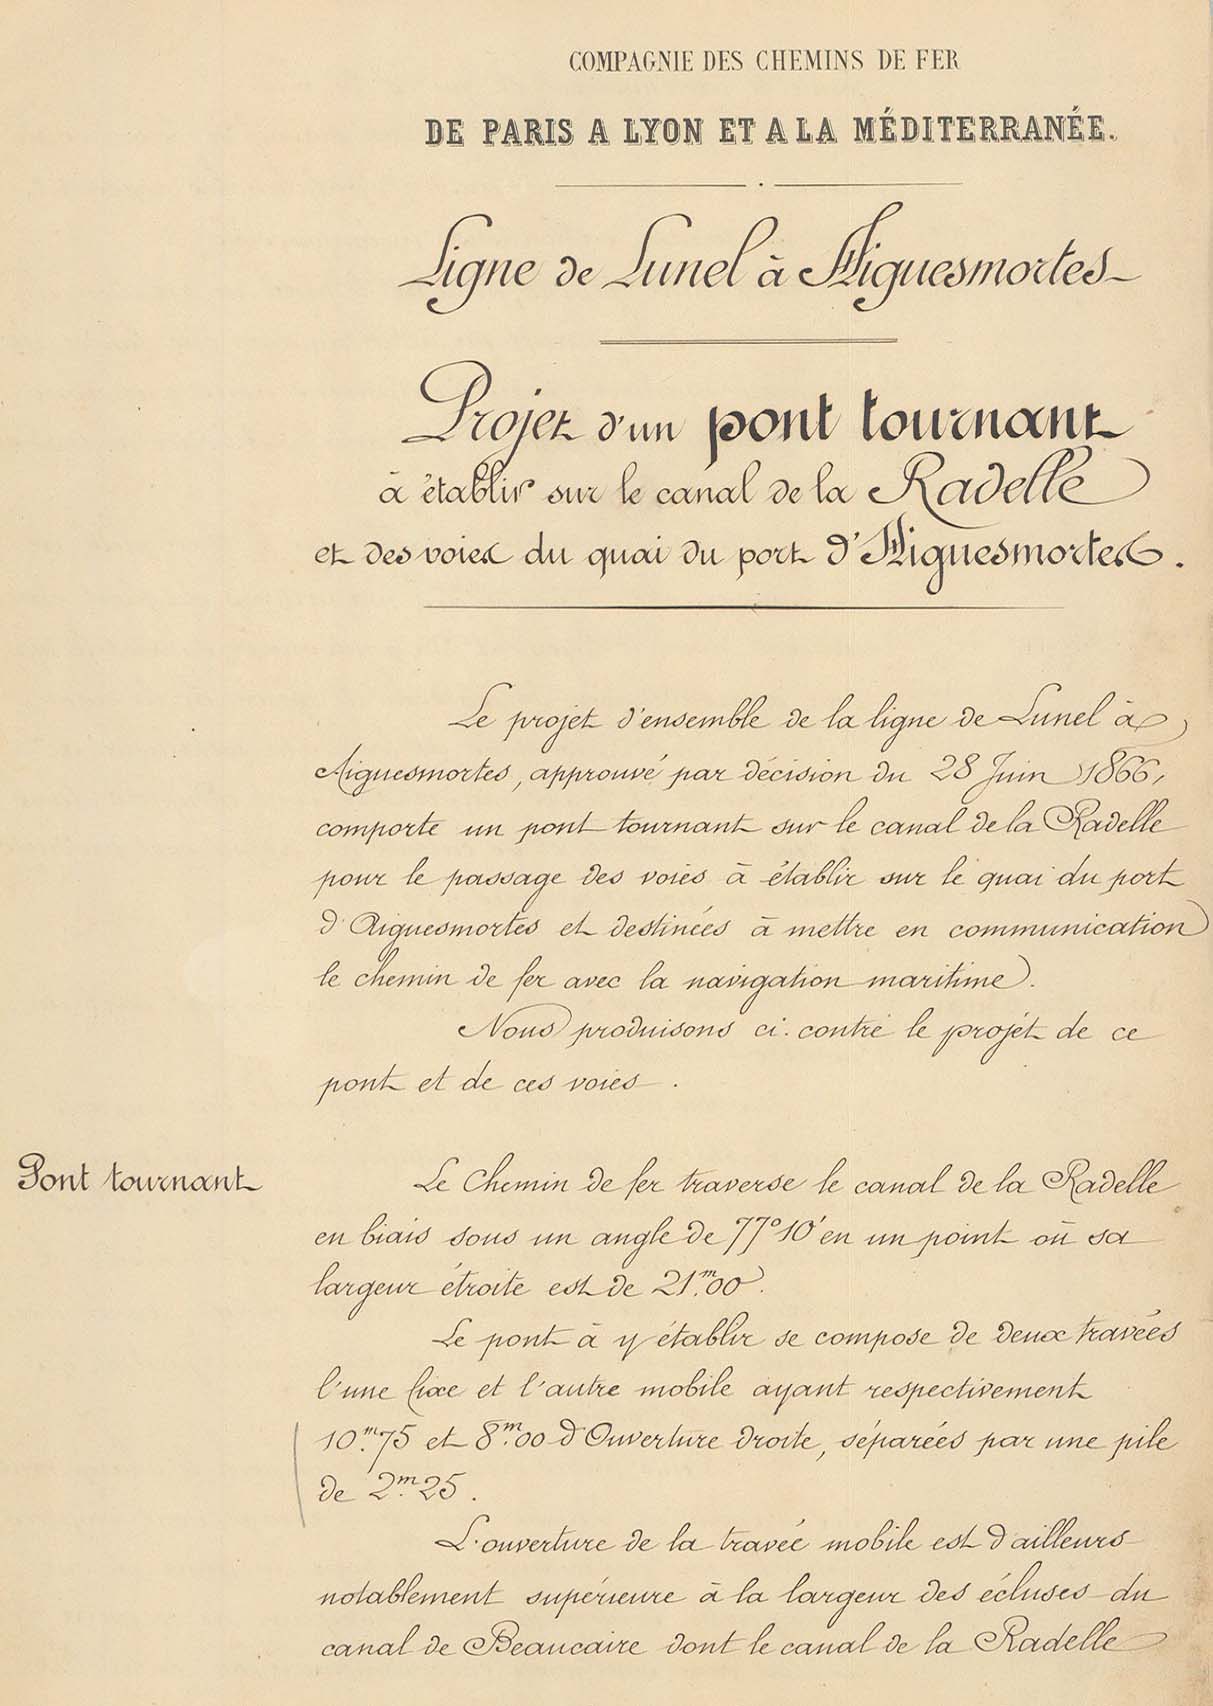 COMPAGNIE DES CHEMINS DE FER
DE PARIS A LYON ET A LA MÉDITERRANÉE.
Ligne de Lunel à Aiguesmortes
Projet d'un pont tournant
à établir sur le canal de la Radelle
et des voies du quai du port d'Aiguesmortes.
Le projet d'ensemble de la ligne de Lunel à
Aiguesmortes, approuvé par décision du 28 Juin 1866,
comporte un pont tournant sur le canal de la Radelle
pour le passage des voies à établir sur le quai du port
d'Aiguesmortes et destinées à mettre en communication
le chemin de fer avec la navigation maritime.
Nous produisons ci-contre le projet de ce
pont et de ces voies.
Pont tournant
Le Chemin de fer traverse le canal de la Radelle
en biais sous un angle de 77°10' en un point où sa
largeur étroite est de 21.m00.
Le pont à y établir se compose de deux travées
l'une fixe et l'autre mobile ayant respectivement
10.m75 et 8.m00 d'Ouverture droite, séparées par une pile
de 2.m25.
L'ouverture de la travée mobile est d'ailleurs
notablement supérieure à la largeur des écluses du
canal de Beaucaire dont le canal de la Radelle